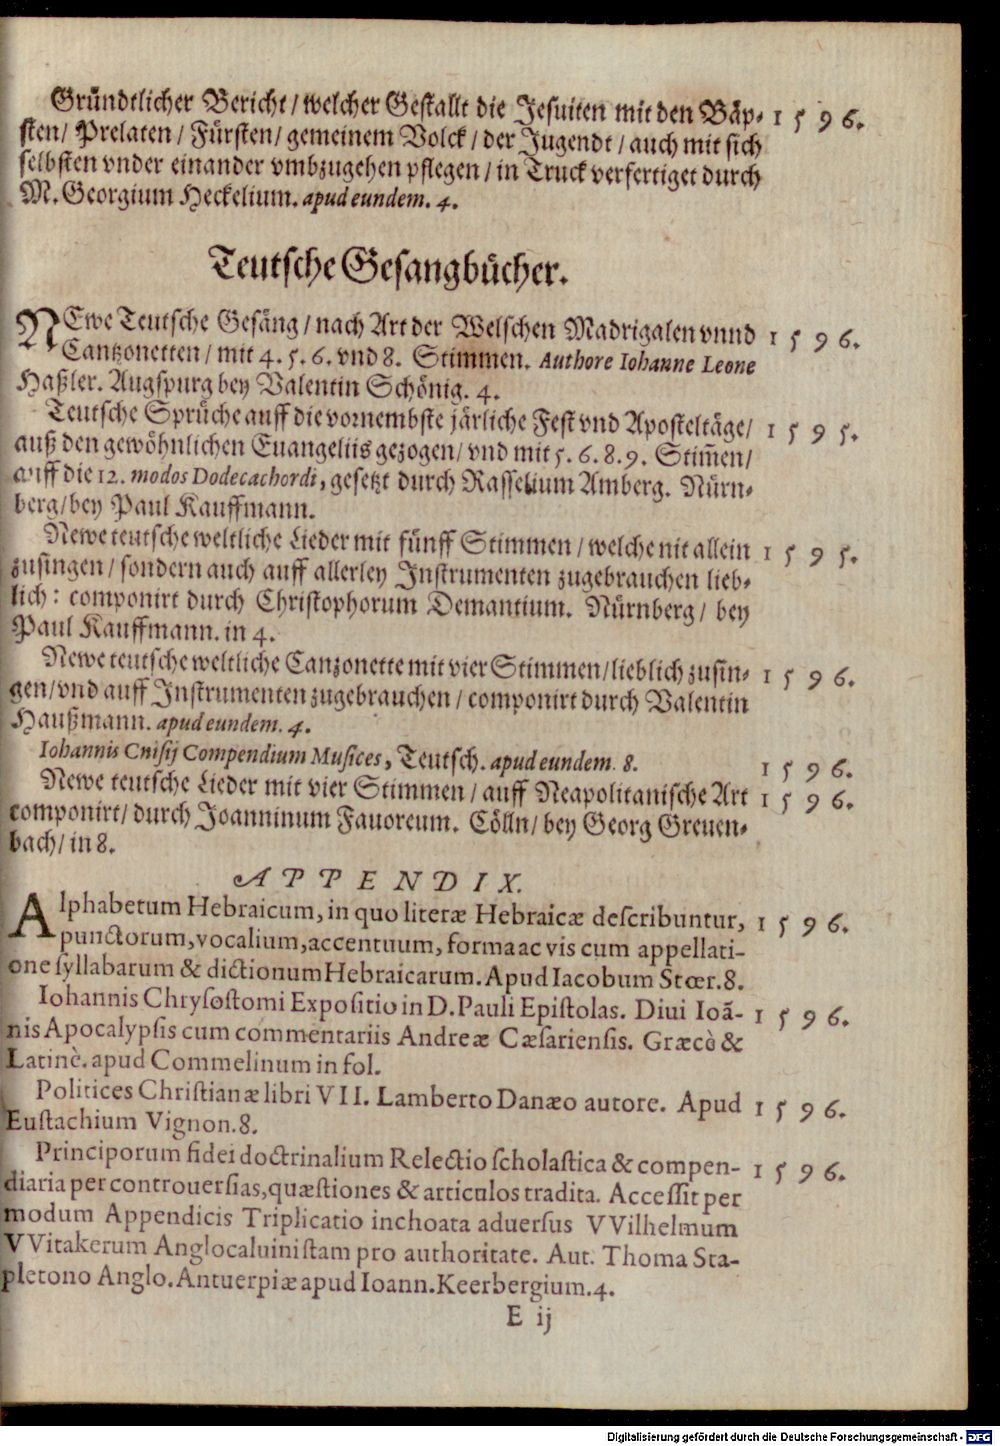 Gründtlicher Bericht / welcher Gestallt die Jesuiten mit den Bäp- 1596.
sten / Prelaten / Fürsten / gemeinem Volck / der Jugendt / auch mit sich
selbsten vnder einander vmbzugehen pflegen / in Truck verfertiget durch
M. Georgium Heckelium. apud eundem. 4.
Teutsche Gesangbücher.
NEwe Teutsche Gesäng / nach Art der Welschen Madrigalen vnnd 1596.
Cantzonetten / mit 4. 5. 6. vnd 8. Stimmen. Authore Iohanne Leone
Haßler. Augspurg bey Valentin Schönig. 4.
Teutsche Sprüche auff die vornembste järliche Fest vnd Aposteltäge / 1595.
auß den gewöhnlichen Euangeliis gezogen / vnd mit 5. 6. 8. 9. Stim̄en /
auff die 12. modos Dodecachordi, gesetzt durch Rasselium Amberg. Nürn-
berg / bey Paul Kauffmann.
Newe teutsche weltliche Lieder mit fünff Stimmen / welche nit allein 1595.
zusingen / sondern auch auff allerley Instrumenten zugebrauchen lieb-
lich : componirt durch Christophorum Demantium. Nürnberg / bey
Paul Kauffmann. in 4.
Newe teutsche weltliche Canzonette mit vier Stimmen / lieblich zusin- 1596.
gen / vnd auff Instrumenten zugebrauchen / componirt durch Valentin
Haußmann. apud eundem. 4.
Iohannis Cnisij Compendium Musices, Teutsch. apud eundem. 8. 1596.
Newe teutsche Lieder mit vier Stimmen / auff Neapolitanische Art 1596.
componirt / durch Joanninum Fauoreum. Cölln / bey Georg Greuen-
bach / in 8.
APPENDIX.
Alphabetum Hebraicum, in quo literæ Hebraicæ describuntur, 1596.
punctorum, vocalium, accentuum, forma ac vis cum appellati-
one syllabarum & dictionum Hebraicarum. Apud Iacobum Stœr. 8.
Iohannis Chrysostomi Expositio in D. Pauli Epistolas. Diui Ioã- 1596.
nis Apocalypsis cum commentariis Andreæ Cæsariensis. Græcè &
Latinè. apud Commelinum in fol.
Politices Christianæ libri VII. Lamberto Danæo autore. Apud 1596.
Eustachium Vignon. 8.
Principorum fidei doctrinalium Relectio scholastica & compen- 1596.
diaria per controuersias, quæstiones & articulos tradita. Accessit per
modum Appendicis Triplicatio inchoata aduersus VVilhelmum
VVitakerum Anglocaluinistam pro authoritate. Aut. Thoma Sta-
pletono Anglo. Antuerpiæ apud Ioann. Keerbergium. 4.
E ij
Digitalisierung gefördert durch die Deutsche Forschungsgemeinschaft - DFG